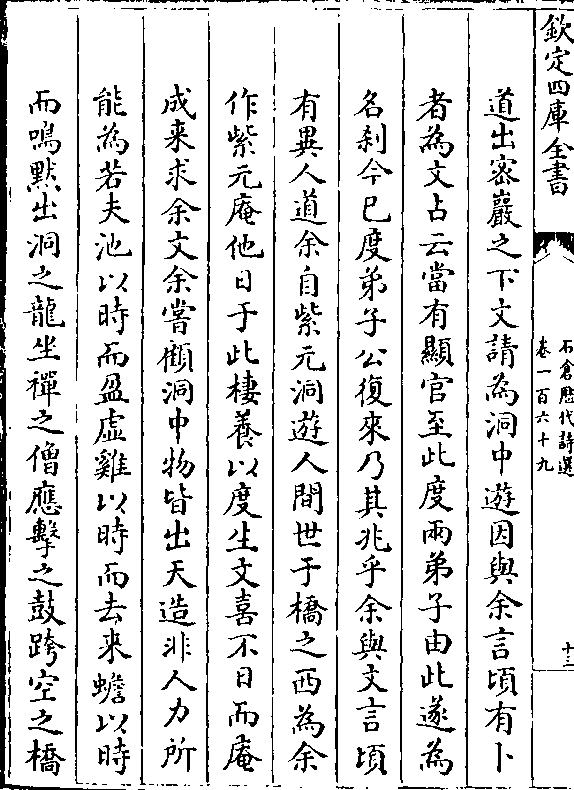 欽定四庫全書
石倉歷代詩選
卷一百六十九
十三
道出密巖之下文請為洞中遊因與余言頃有卜
者為文占云當有顯官至此度兩弟子由此遂為
名刹今已度弟子公復來乃其兆乎余與文言頃
有異人道余自紫元洞遊人間世于橋之西為余
作紫元庵他日于此棲養以度生文喜不日而庵
成来求余文余嘗顧洞中物皆出天造非人力所
能為若夫池以時而盈虛雞以時而去来蟾以時
而鳴黙出洞之龍坐禪之僧應擊之鼓跨空之橋